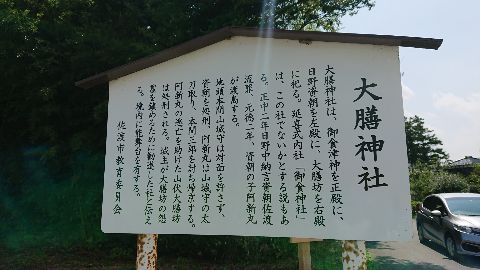 大膳神社
大膳神社は、御食津神を正殿に、
日野資朝を左殿に、大膳坊を右殿
に祀る。延喜式内社「御食神社」
は、この社でないかとする説もあ
る。正中二年日野中納言資朝佐渡
流罪、元徳二年、資朝の子阿新丸
が渡島する。
地頭本間山城守は対面を許さず、
資朝を処刑。阿新丸は山城守の太
刀取り、本間三郎を討ち帰京する。
阿新丸の逃亡を助けた山伏大膳坊
は処刑される。城主が大膳坊の怨
霊を鎮めるために勧請した社と伝え
る。境内に能舞台を有する。
佐渡市教育委員会